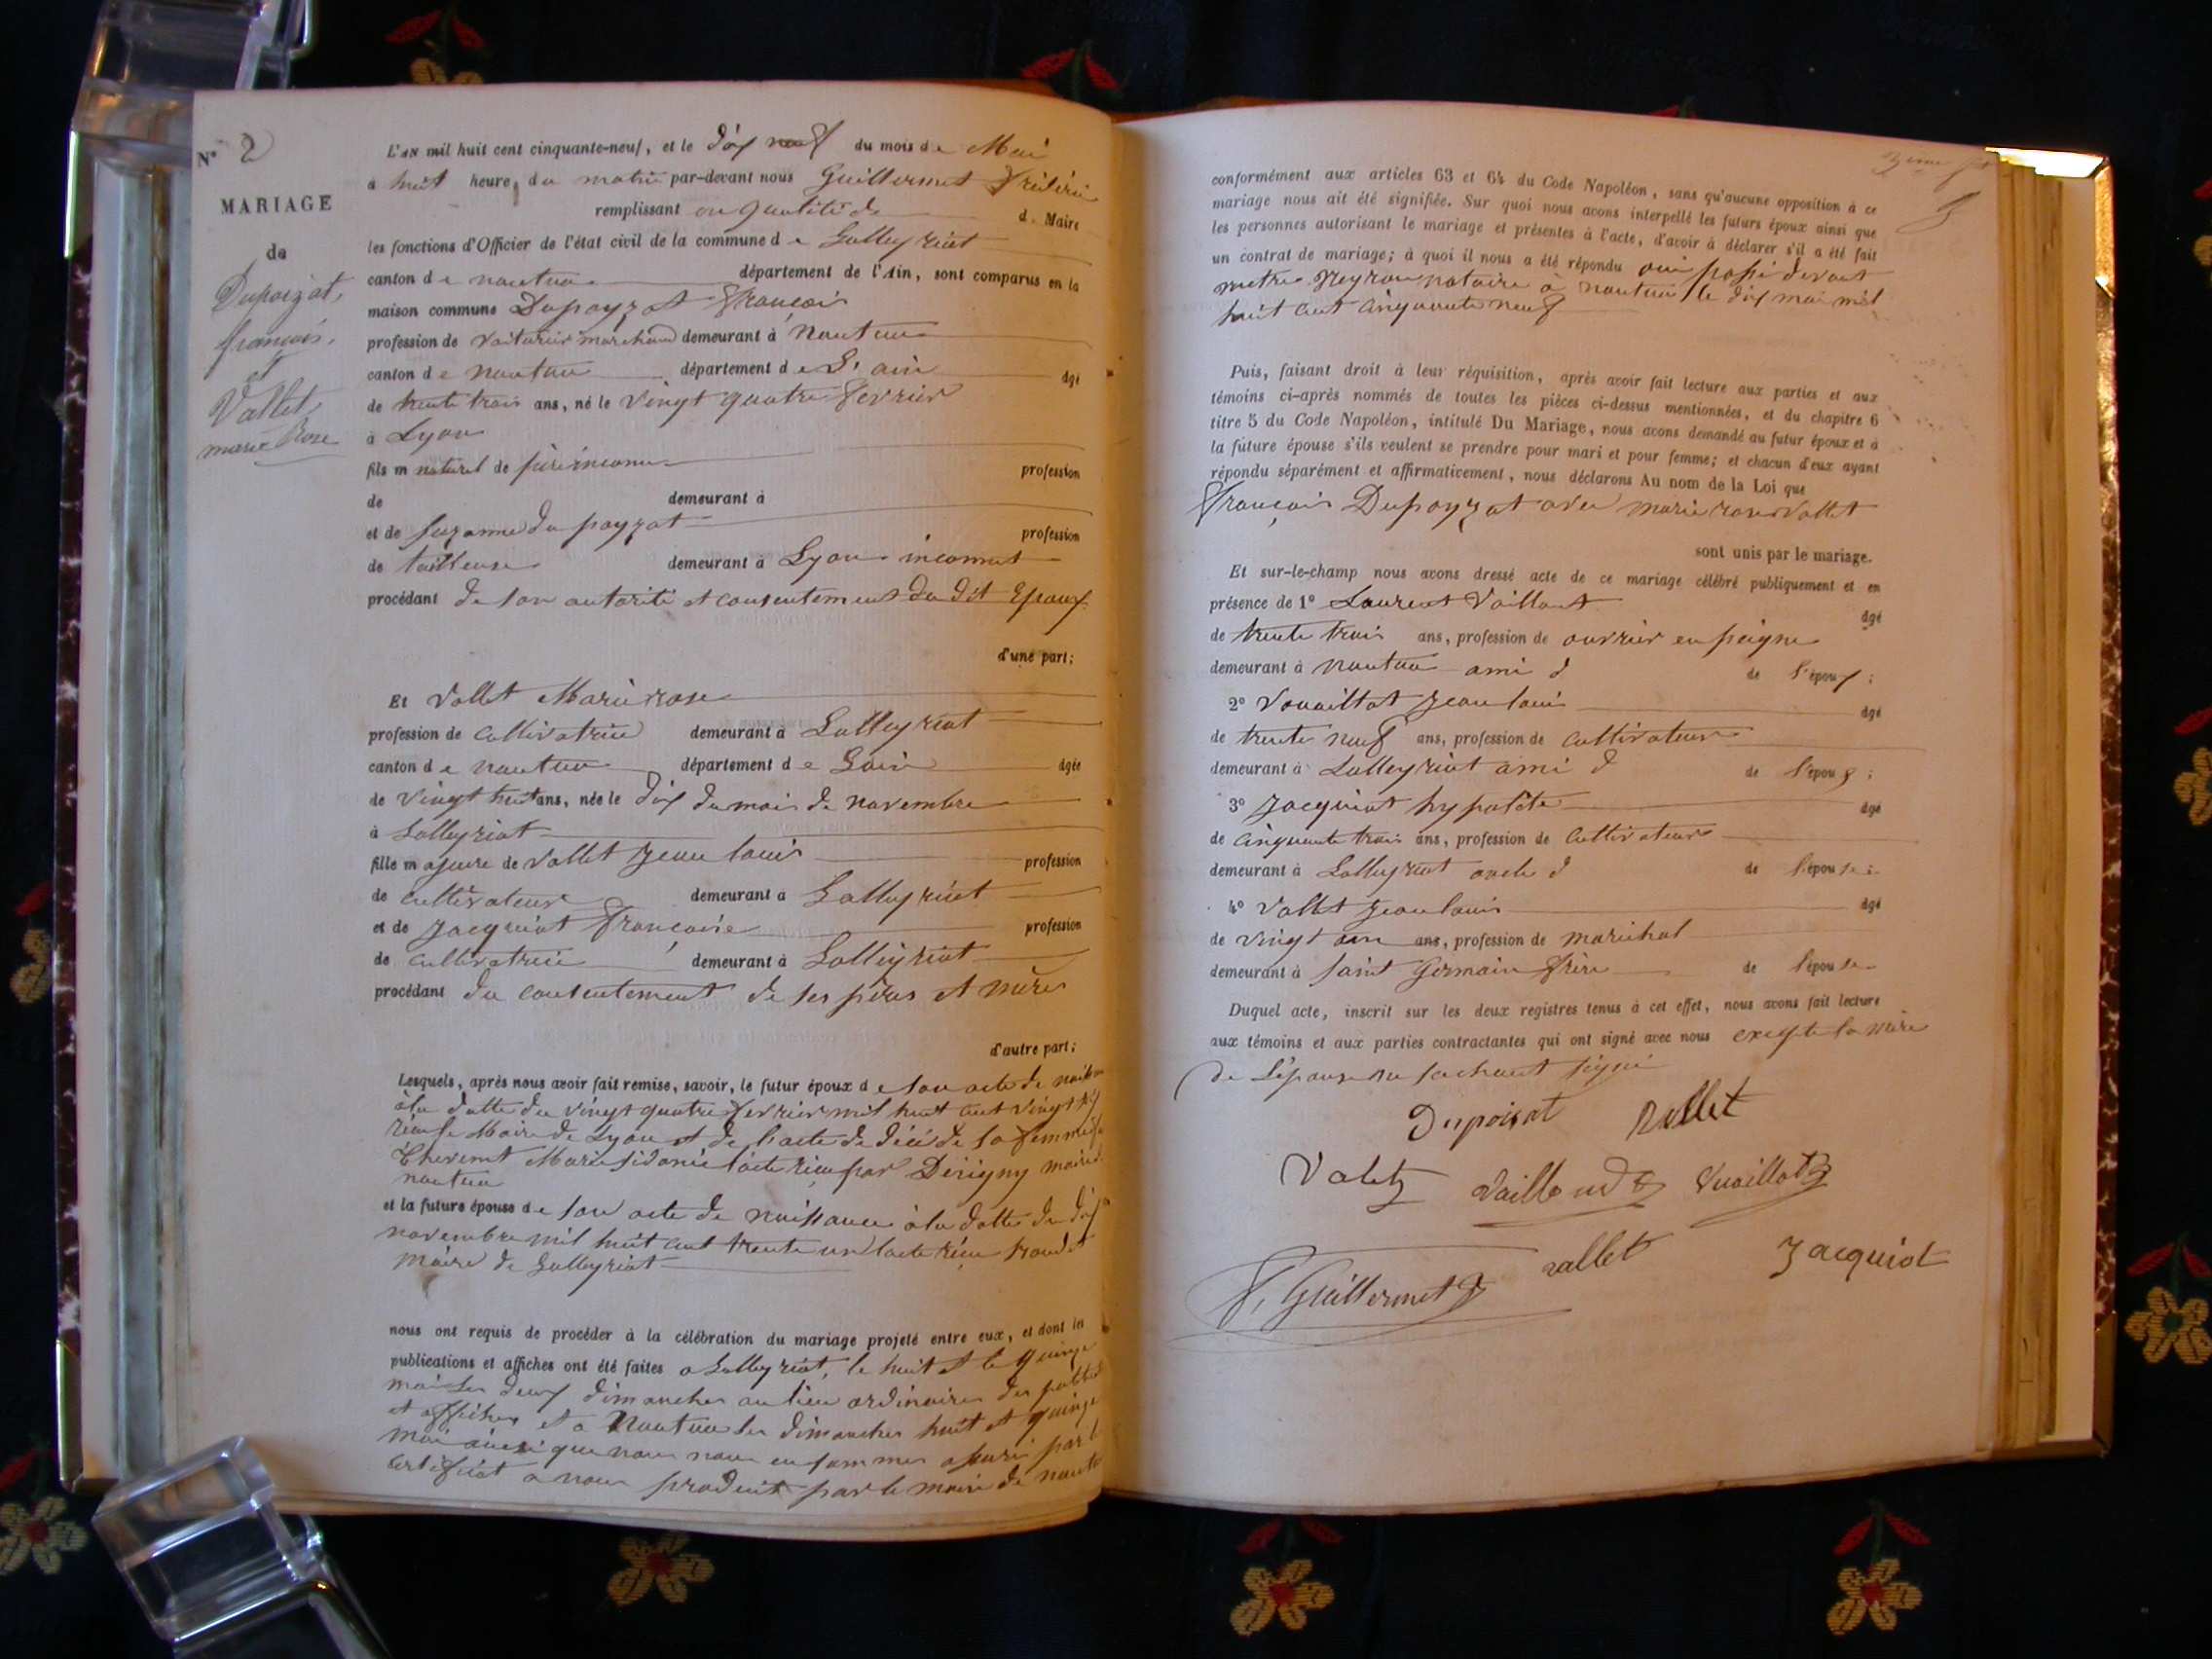 N° 2
MARIAGE
de
Dupoizat,
françois,
et
Vallet,
marie Rose
L'AN mil huit cent cinquante-neuf, et le dix neuf du mois de Mai
à huit heure, du matin par-devant nous Guillermet frédéric
remplissant en qualité de d. Maire
les fonctions d'Officier de l'état civil de la commune de Lalleyriat
canton de nantua département de l'Ain, sont comparus en la
maison commune Dupoyzat françois
profession de voiturier marchand demeurant à Nantua
canton de nantua département de L'ain âgé
de trente trois ans, né le vingt quatre fevrier
à Lyon
fils m naturel de père inconnu profession
de demeurant à
et de suzanne du poyzat profession
de tailleuse demeurant à Lyon inconnut
procédant de son autorité et consentement du dit Epoux
d'une part;
Et vallet Marie rose
profession de cultivatrice demeurant à Lalleyriat
canton de nantua département de Lain âgée
de vingt huit ans, née le dix du mois de novembre
à Lalleyriat
fille majeure de vallet jean louis profession
de cultivateur demeurant à Lalleyriat
et de jacquiot françoise profession
de cultivatrice demeurant à Lalleyriat
procédant du consentement de ses pères et mères
d'autre part;
Lesquels, après nous avoir fait remise, savoir, le futur époux de son acte de
à la datte du vingt quatre fevrier mil huit cent vingt
le Maire de Lyon et de l'acte de décé de sa femme
Marie sidonie l'acte réçu par Dérigny maire
nantua
et la future épouse de son acte de naissance à la datte du dix
novembre mil huit cent trente un l'acte réçu
maire de Lalleyriat
nous ont requis de procéder à la célébration du mariage projeté entre eux, et dont les
publications et affiches ont été faites a Lalleyriat, le huit et le quinze
mai les deux dimanches au lieu ordinaires des
et affiches et a Nantua les dimanches huit et quinze
mai ainsi que nous nous en sommes assuré par
certificat a nous produit par le maire de
conformément aux articles 63 et 64 du Code Napoléon, sans qu'aucune opposition à ce
mariage nous ait été signifiée. Sur quoi nous avons interpellé les futurs époux ainsi que
les personnes autorisant le mariage et présentes à l'acte, d'avoir à déclarer s'il a été fait
un contrat de mariage; à quoi il nous a été répondu oui passé devant
metre neyron notaire à nantua le dix mai mil
huit cent cinquante neuf
Puis, faisant droit à leur réquisition, après avoir fait lecture aux parties et aux
témoins ci-après nommés de toutes les pièces ci-dessus mentionnées, et du chapitre 6
titre 5 du Code Napoléon, intitulé Du Mariage, nous avons demandé au futur époux et à
la future épouse s'ils veulent se prendre pour mari et pour femme; et chacun d'eux ayant
répondu séparément et affirmativement, nous déclarons Au nom de la Loi que
françois Dupoyzat avec marie rose vallet
sont unis par le mariage.
Et sur-le-champ nous avons dressé acte de ce mariage célébré publiquement et en
présence de 1° Laurent Vaillant âgé
de trente trois ans, profession de ouvrier en peigne
demeurant à nantua ami d de l'époux;
2° Vouaillat jean louis âgé
de trente neuf ans, profession de cultivateur
demeurant à Lalleyriat ami d de l'époux;
3° jacquiot hypolite âgé
de cinquante trois ans, profession de cultivateur
demeurant à Lalleyriat oncle d de l'épouse;
4° vallet jean louis âgé
de vingt ans, profession de maréchal
demeurant à saint germain frère de l'épouse
Duquel acte, inscrit sur les deux registres tenus à cet effet, nous avons fait lecture
aux témoins et aux parties contractantes qui ont signé avec nous excepte la mère
de L'épouse ne sachant signé
Dupoizat vallet
Valet vaillend Vuaillat
F. Guillermet vallet Jacquiot